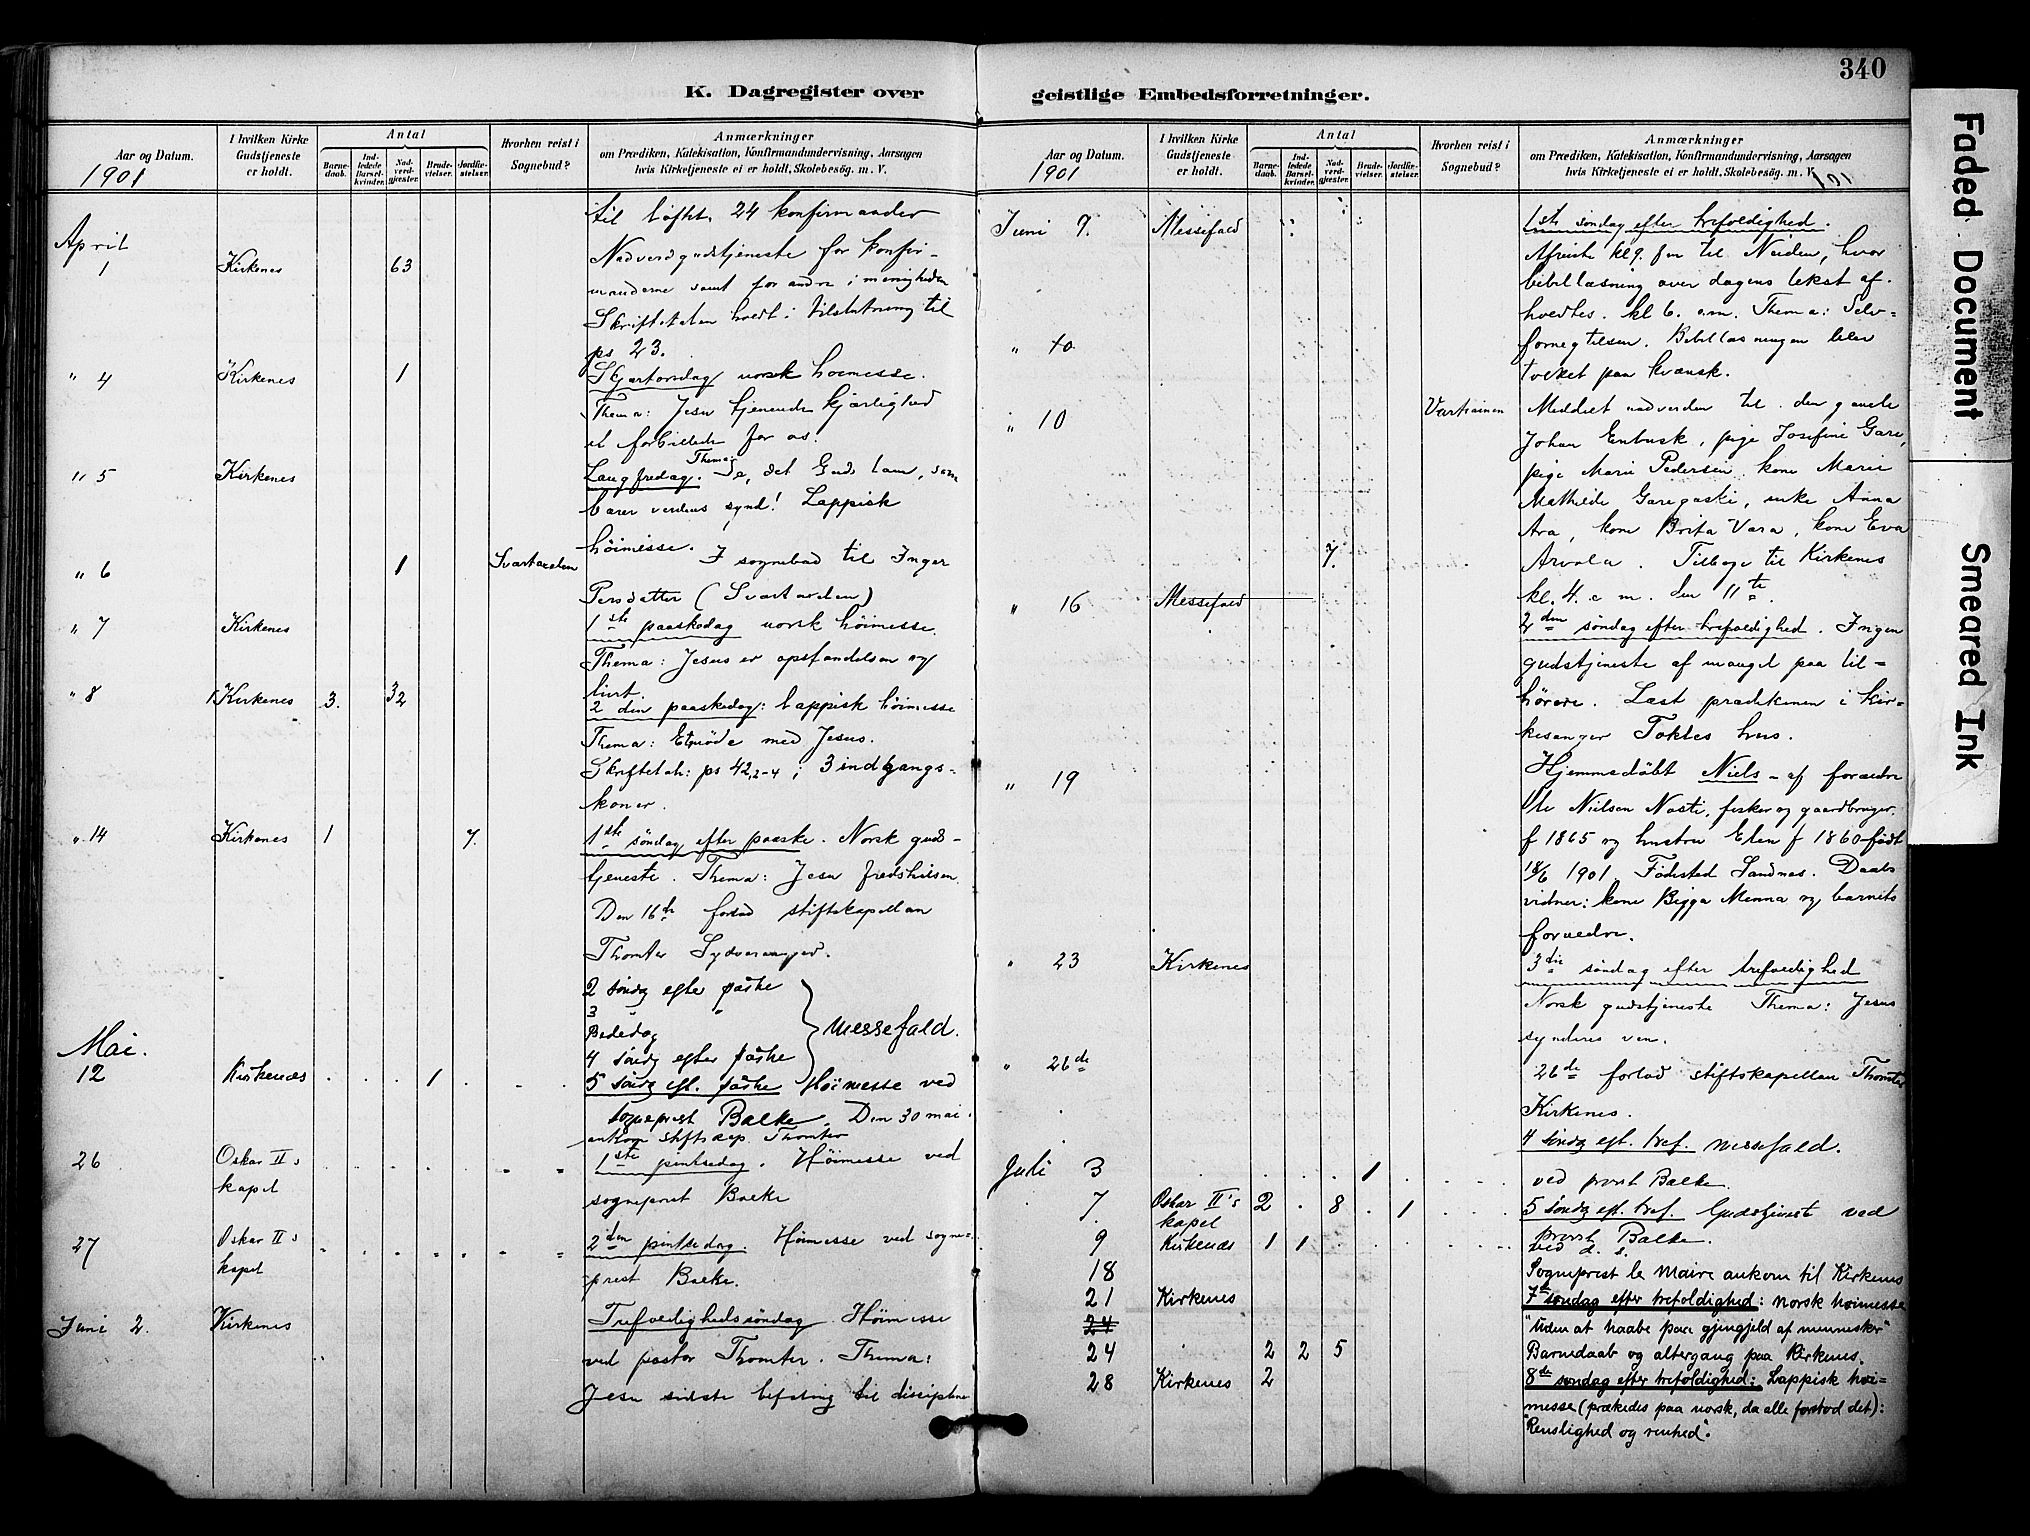 340
K. Dagregister over geistlige Embedsforretninger.
Aar og Datum.
1901
I hvilken Kirke
Gudstjeneste
er holdt.
Antal
Barne-
daab.
Ind-
ledede
Barsel-
kvinder.
Nad-
verd-
gjæster.
Brude-
vielser.
Jordfæ-
stelser.
Hvorhen reist i
Sognebud?
Anmærkninger
om Prædiken, Katekisation, Konfirmandundervisning, Aarsagen
hvis Kirketjeneste ei er holdt, Skolebesøg. m. V.
til løftet. 24 konfirmander
April
1 Kirkenes 63 Nadverdgudstjeneste for konfir-
manderne samt for andre i menigheden
Skriftetalen holdt i tilslutning til
ps 23.
" 4 Kirkenes 1 Skjærtorsdag norsk høimesse.
Thema: Jesu tjenende kjærlighed
et forbillede for os.
" 5 Kirkenes Langfredag. Thema: Se, det Guds lam, som
bærer verdens synd! Lappisk
høimesse.
" 6 1 Svartaxelen I sognebud til Inger
Persdatter (Svartaxelen)
" 7 Kirkenes 1ste paaskedag norsk høimesse.
Thema: Jesus er opstandelsen og
livet.
" 8 Kirkenes 3. 32 2den paaskedag: Lappisk høimesse
Thema: Et møde med Jesus.
Skriftetale: ps 42,2-4; 3 indgangs-
koner.
" 14 Kirkenes 1 7. 1ste søndag efter paaske. Norsk guds-
tjeneste. Thema: Jesu fredshilsen.
Den 16de forlod stiftskapellan
Thomter Sydvaranger.
2 søndg efter påske
3 " "
Bededag
4 søndg efter påske
Messefald.
Mai.
12 Kirkenæs 1 5 søndg eft. påske Høimesse ved
sogneprest Balke. Den 30 mai
ankom stiftskap. Thomter
26 Oskar II s
kapel
1ste pintsedag. Høimesse ved
sogneprest Balke
27 Oskar II s
kapel
2den pintsedag. Høimesse ved sogne-
prest Balke.
Juni 2. Kirkenes Trefoldighedssøndag. Høimesse
ved pastor Thomter. Thema:
Jesu sidste befaling til disciplene
Aar og Datum.
1901
I hvilken Kirke
Gudstjeneste
er holdt.
Antal
Barne-
daab.
Ind-
ledede
Barsel-
kvinder.
Nad-
verd-
gjæster.
Brude-
vielser.
Jordfæ-
stelser.
Hvorhen reist i
Sognebud?
Anmærkninger
om Prædiken, Katekisation, Konfirmandundervisning, Aarsagen
hvis Kirketjeneste ei er holdt, Skolebesøg. m. V.
Juni 9. Messefald 1ste søndag efter trefoldighed.
Afreiste kl 9. fm til Neiden, hvor
bibellæsning over dagens tekst af-
holdtes. kl 6. e.m. Thema: Selv-
" 10 fornegtelsen. Bibellæsningen blev
tolket paa kvænsk.
" 10 Vartiainen Meddelt nadverden til den gamle
Johan Enbusk, pige Josefine Gare,
pige Marie Pedersen, kone Marie
Mathilde Garegaski, enke Anna
Ara, kone Brita Vara, kone Eva
7. Arvola. Tilbage til Kirkenes
kl. 4. e m. den 11te.
" 16 Messefald 2den søndag efter trefoldighed. Ingen
gudstjeneste af mangel paa til-
hørere. Læst prædikenen i kir-
kesanger Toktes hus.
" 19 Hjemmedøbt Niels - af forældre
Ole Nielsen Nasti, fisker og gaardbruger.
f 1865 og hustru Elen f 1860 født
18/6 1901. Fødested Sandnæs. Daabs
vidner: kone Bigga Menna og barnets
forældre.
" 23 Kirkenes 3die søndag efter trefoldighed
Norsk gudstjeneste Thema: Jesus
synderes ven.
" 26de 26de forlod stiftskapellan Thomter
Kirkenes.
4 søndg eft. tref. messefald.
Juli 3 1 ved provst Balke.
7 Oskar II's
kapel
2 8 1 5 søndg eft. tref. Gudstjenest ved
provst Balke.
9 Kirkenæs 1 1 ved d. s.
18 Sogneprest le Maire ankom til Kirkenes
21 Kirkenes 7de søndag efter trefoldighed: norsk høimesse
24 "Uden at haabe paa gjengjeld af mennesker"
24 2 2 5 Barnedaab og altergang paa Kirkenes.
28 Kirkenes 2 8de søndag efter trefoldighed: Lappisk høi-
messe (prækedes paa norsk, da alle forstod det):
"Renslighed og renhed".
Faded Document
Smeared Ink